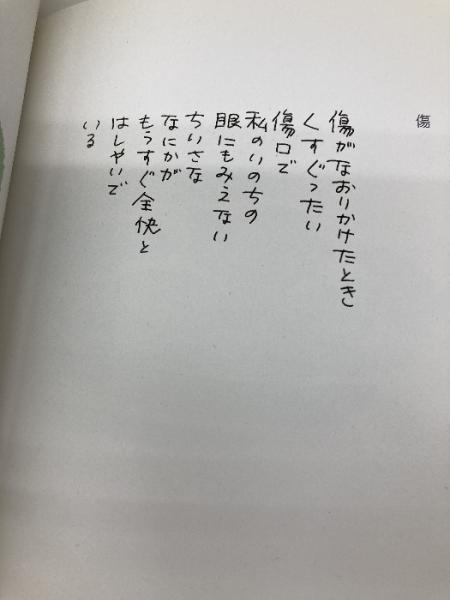 傷
傷がなおりかけたとき
くすぐったい
傷口で
私のいのちの
眼にもみえない
ちいさな
なにかが
もうすぐ全快と
はしゃいで
いる